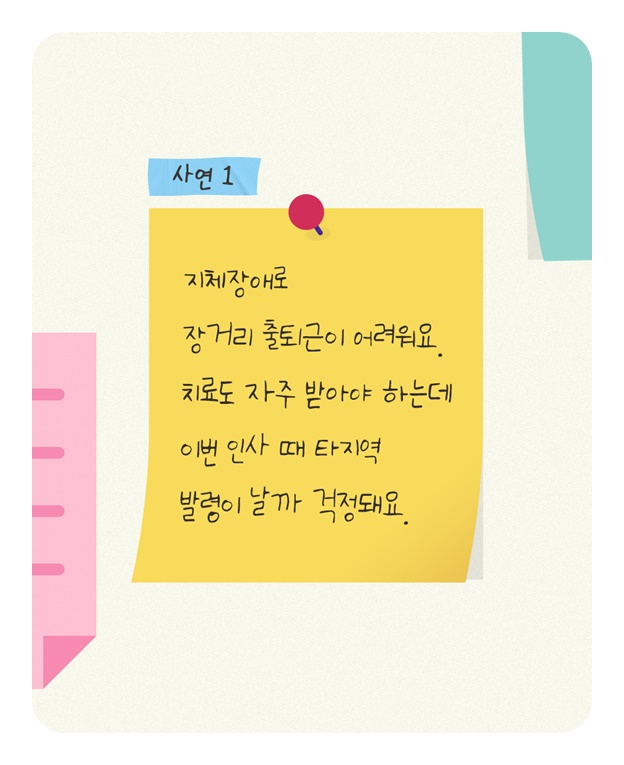 사연 1
지체장애로
장거리 출퇴근이 어려워요.
치료도 자주 받아야 하는데
이번 인사 때 타지역
발령이 날까 걱정돼요.